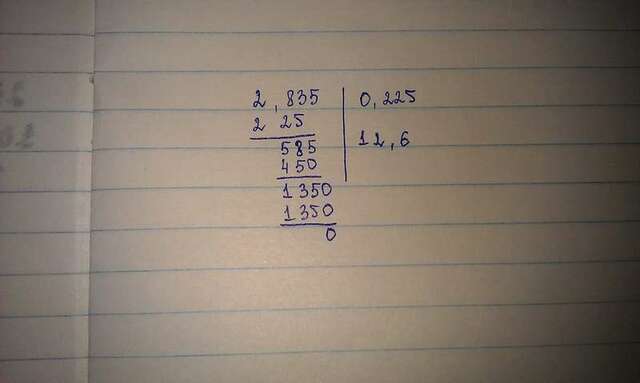 2,835 0,225
2 25 12,6
585
450
1350
1350
0